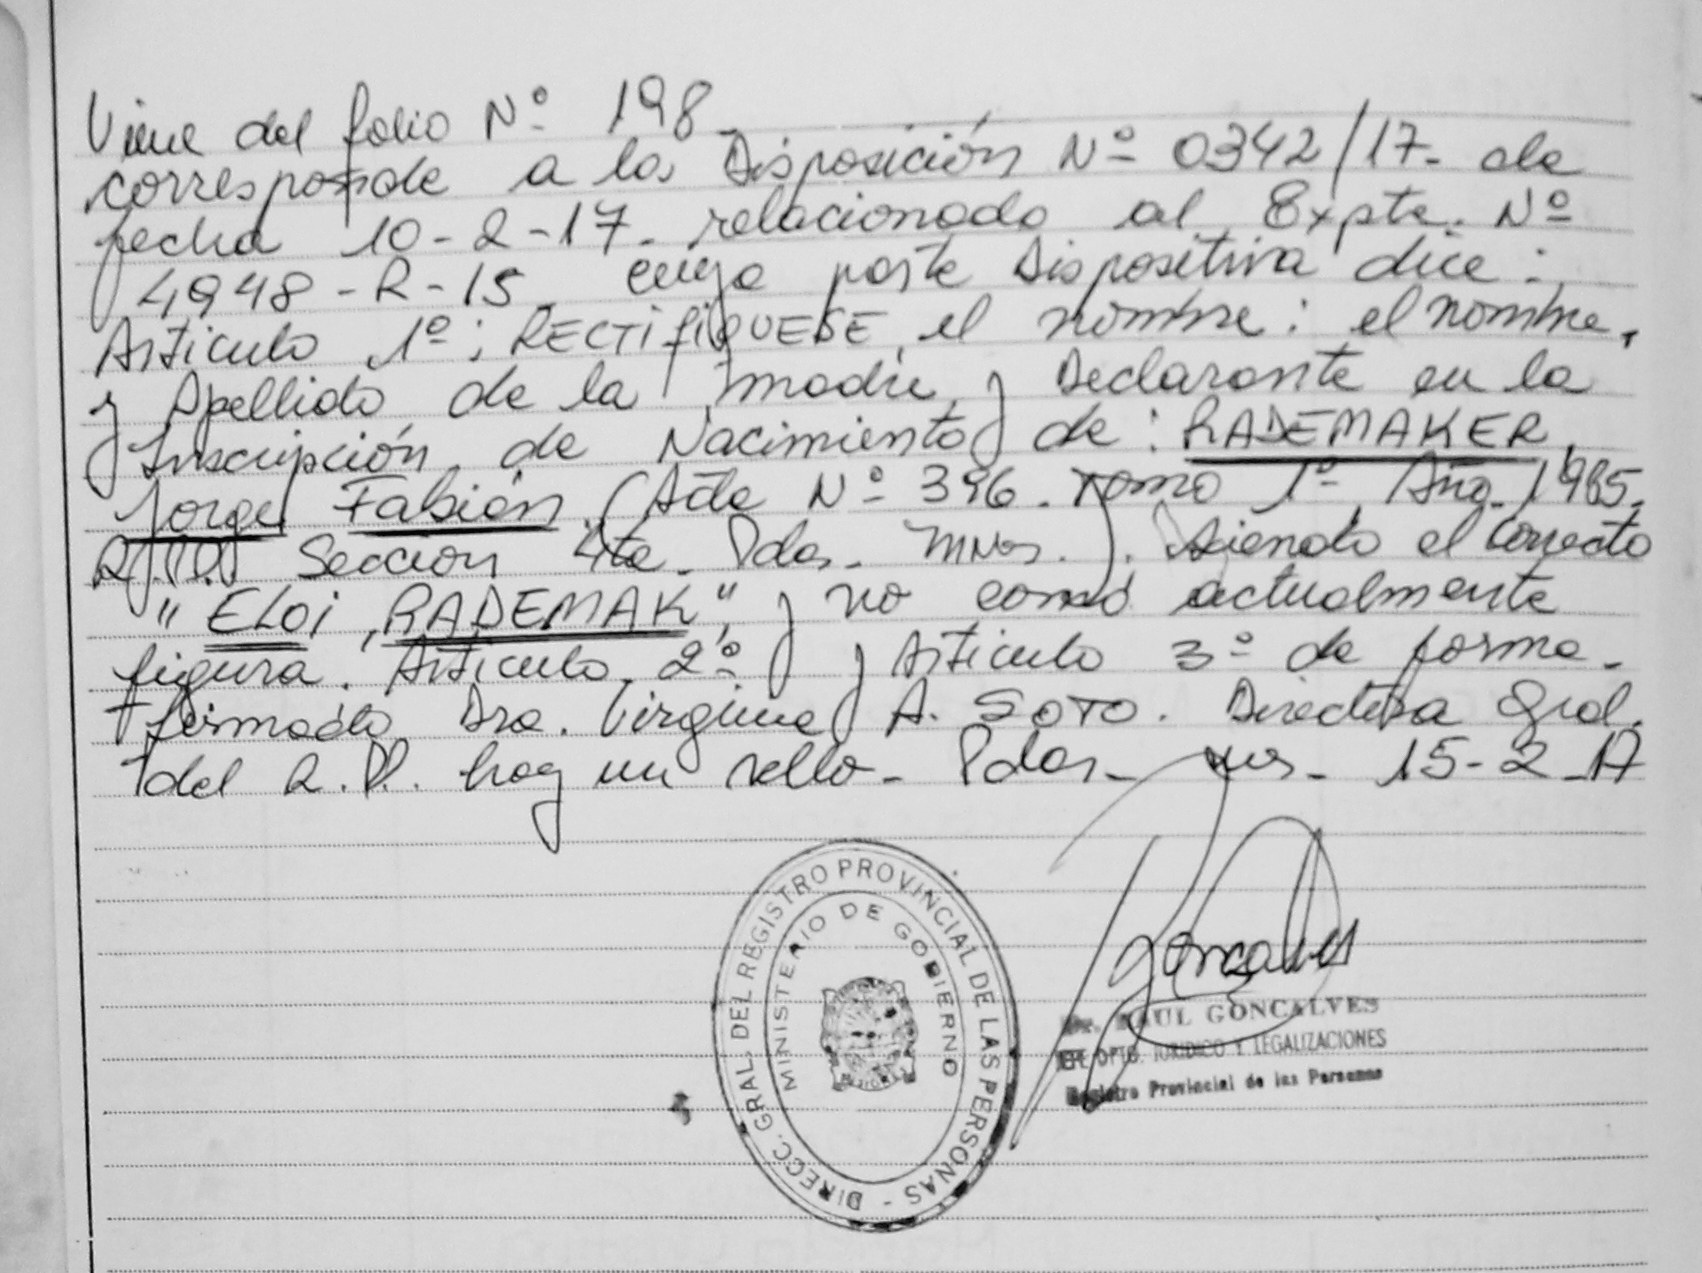 Viene del folio Nº 198_
corresponde a la Disposición Nº 0342/17- de
fecha 10-2-17_ relacionado al Expte. Nº
4948-R-15_ cuya parte Dispositiva dice:
Articulo 1º: RECTIFIQUESE, el nombre: el nombre,
y Apellido de la madre y Declarante en la
Inscripción de Nacimiento de: RADEMAKER,
Jorge Fabián (Acta Nº 396. Tomo 1º Año 1985,
R.P. Sección 4ta_ Pdas_ Mnes.). Siendo el Correcto
"ELOI, RADEMAK", y no como actualmente
figura. Articulo 2º y Articulo 3º de forma_
firmado Dra. Virginia A. SOTO. Directora Gral.
del R.P. hay un sello_ Pdas_ 15-2-17
DIRECC. GRAL. DEL REGISTRO PROVINCIAL DE LAS PERSONAS -
MINISTERIO DE GOBIERNO
Goncalves
Dr. RAUL GONCALVES
DPTO. JURIDICO Y LEGALIZACIONES
Registro Provincial de las Personas